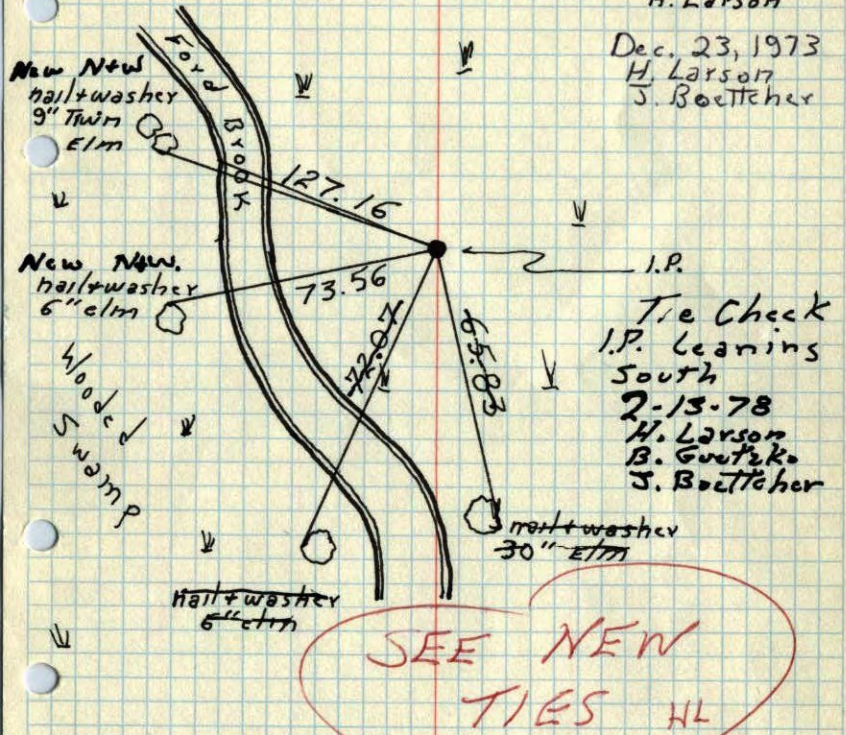 H. Larson
Dec. 23, 1973
H. Larson
J. Boettcher
New N+W
nail+washer
9" Twin
Elm
Ford Brook
127.16
I.P.
New N+W.
nail+washer
6" elm
73.56
72.07
65.83
Tie Check
I.P. Leaning
South
2-13-78
H. Larson
B. Goetzke
J. Boettcher
Wooded
Swamp
nail+washer
30" elm
nail+washer
6" elm
SEE NEW
TIES HL